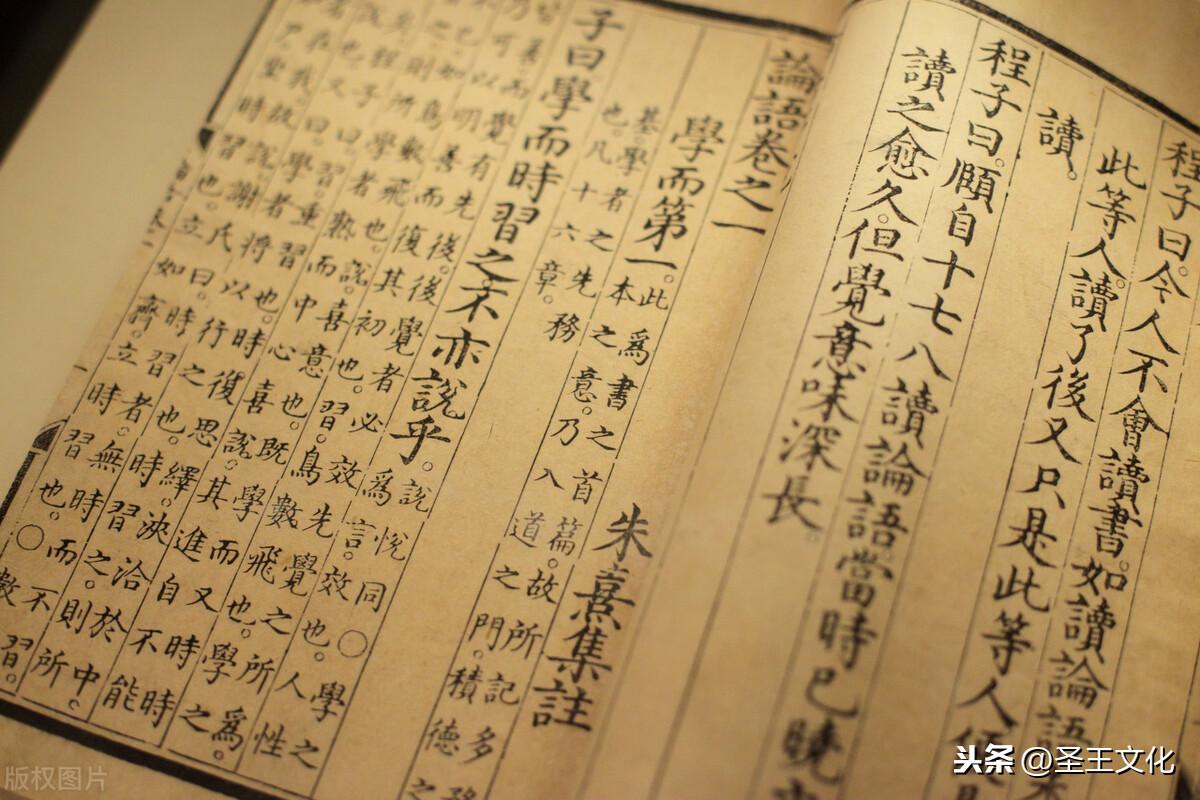 程子曰。今人不會讀書。如讀論語未
此等人。讀了後又只是此等人便是
讀。
程子曰。頤自十七八讀論語當時已曉
讀之愈久。但覺意味深長。
論語卷之一
朱熹集註
學而第一。此為書之首篇。故所記多務
本之意。乃入道之門。積德之
基學者之先務
也。凡十六章。
子曰學而時習之不亦說乎。說悅同○學之
為言。效也。人性
皆善。而覺有先後。後覺者必效先覺之所為。
乃可以明善而復其初也。習。鳥數飛也。學之
不已。如鳥數飛也。說。喜意也。既學而又時時
習之。則所學者熟。而中心喜說。其進自不能
已矣。程子曰。習重習也。時復思繹。浹洽於中。
則說也。又曰。學者將以行之也。時習之。則所
學者在我。故說。謝氏曰。時習者。無時而不習。
坐如尸。坐時習也。立如齊。立時習也。○
头条 @圣王文化
版权图片